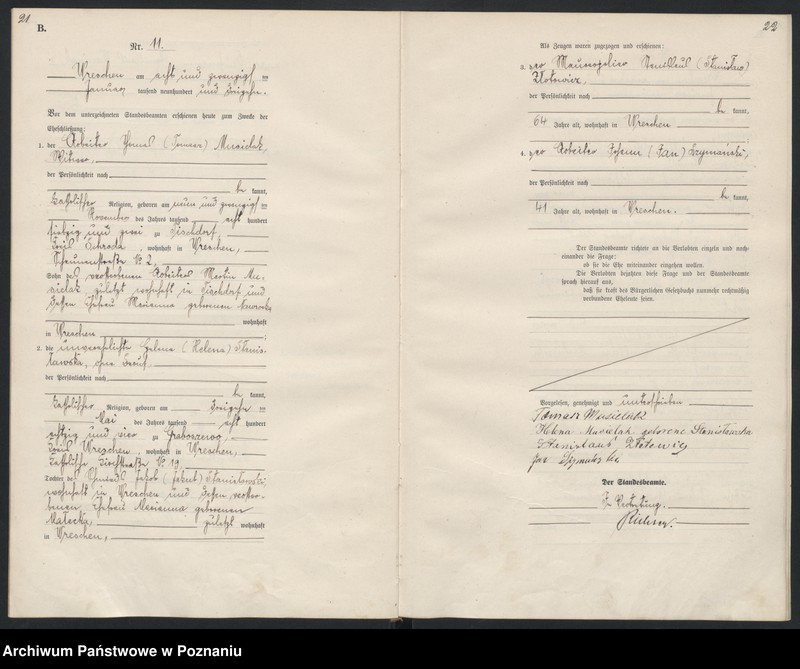 21.
B.
Nr. 11.
Wreschen am acht und zwanzigsten
Januar tausend neunhundert und dreizehn.
Vor dem unterzeichneten Standesbeamten erschienen heute zum Zwecke der
Eheschließung:
1. der Arbeiter Thomas (Tomasz) Musielak,
Witwer,
der Persönlichkeit nach
be kannt,
katholischer Religion, geboren am neun und zwanzigsten
November des Jahres tausend acht hundert
siebzig und zwei zu Tischdorf,
Kreis Schroda, wohnhaft in Wreschen,
Scheunenstraße № 2,
Sohn des verstorbenen Arbeiters Martin Mu-
sielak zuletzt wohnhaft in Tischdorf und
dessen Ehefrau Marianna geborenen
wohnhaft
in Wreschen
2. die unverehelichte Helene (Helena) Stanis-
ławska, ohne Beruf
der Persönlichkeit nach
be kannt,
katholischer Religion, geboren am dreizehn
Mai des Jahres tausend acht hundert
achtzig und vier zu Graboszewo,
Kreis Wreschen, wohnhaft in Wreschen,
Katholische Kirchstraße № 19,
Tochter des Jakob (Jakub) Stanisławski
wohnhaft in Wreschen und dessen verstor-
benen Ehefrau Marianna geborenen
Małecka, zuletzt wohnhaft
in Wreschen,
22
Als Zeugen waren zugezogen und erschienen:
3. der Maurerpolier Stanislaus (Stanisław)
Złotowicz,
der Persönlichkeit nach
be kannt,
64 Jahre alt, wohnhaft in Wreschen
4. der Arbeiter Johann (Jan) Szymański,
der Persönlichkeit nach
be kannt,
41 Jahre alt, wohnhaft in Wreschen.
Der Standesbeamte richtete an die Verlobten einzeln und nach-
einander die Frage:
ob sie die Ehe miteinander eingehen wollen.
Die Verlobten bejahten diese Frage und der Standesbeamte
sprach hierauf aus,
daß sie kraft des Bürgerlichen Gesetzbuchs nunmehr rechtmäßig
verbundene Eheleute seien.
Vorgelesen, genehmigt und unterschrieben
Tomasz Musielak
Helena Musielak geborene Stanisławska
Stanislaus Złotowicz
Jan Szymański
Der Standesbeamte.
In Vertretung.
Archiwum Państwowe w Poznaniu